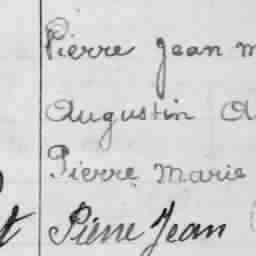 Pierre Jean M
Augustin A
Pierre Marie
t Pierre Jean